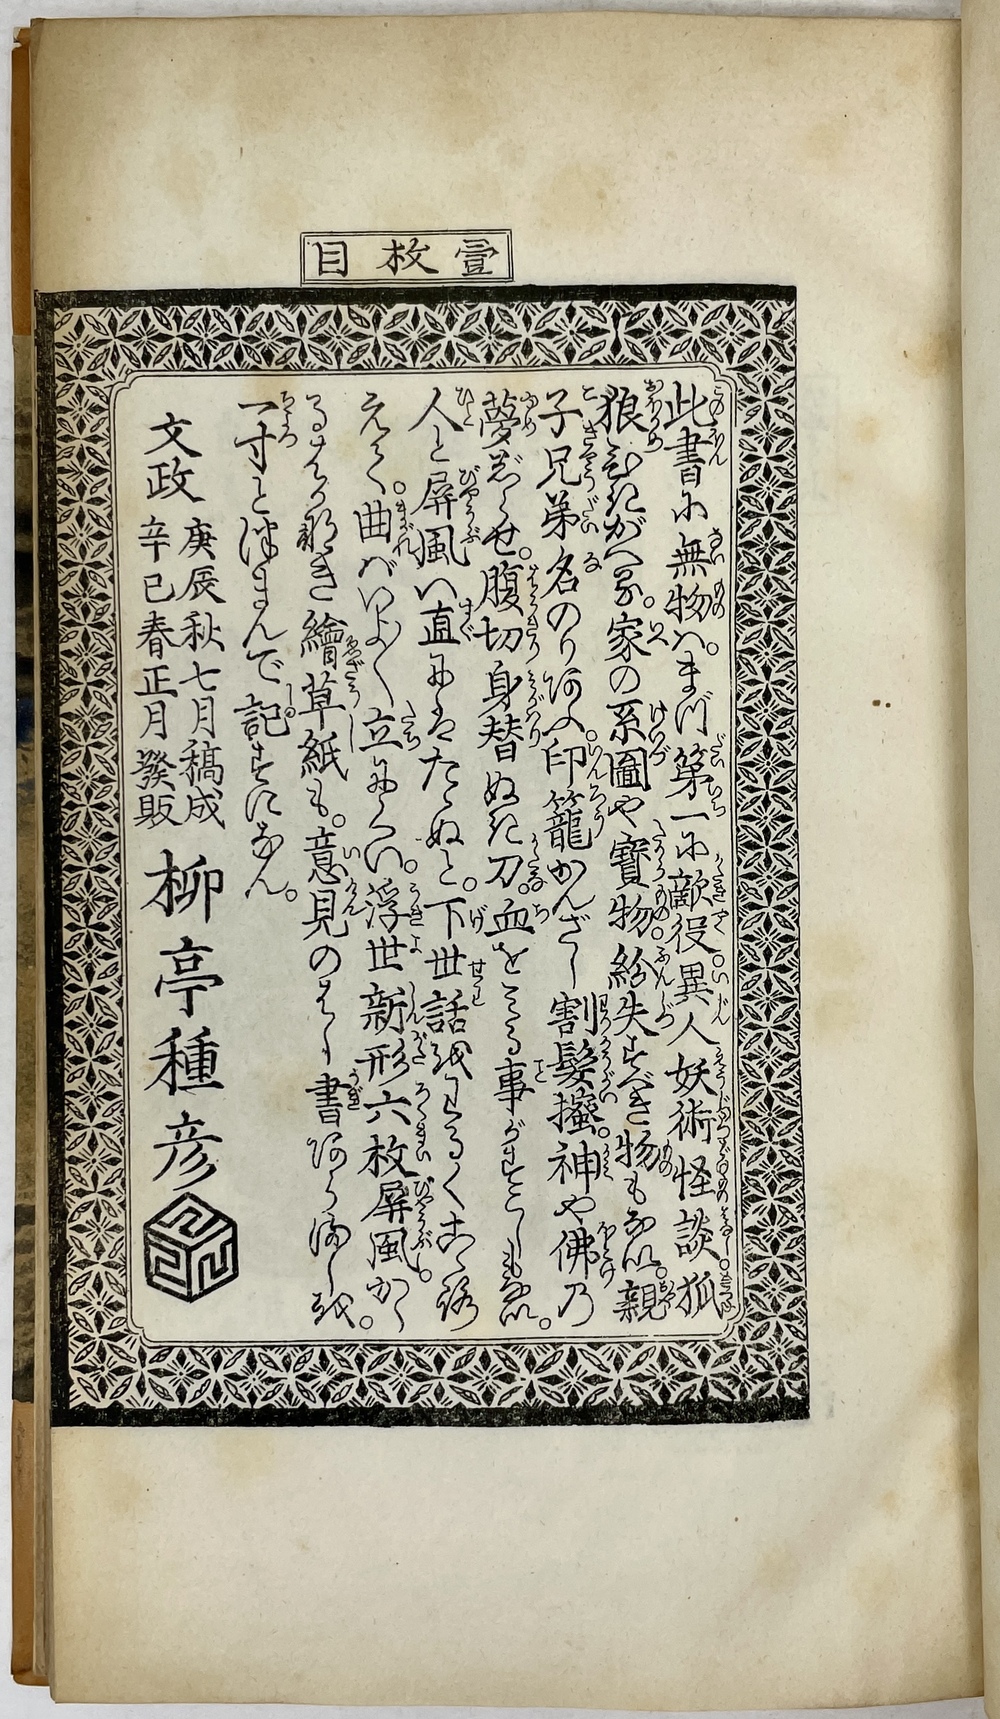 壹枚目
此書に無物は。まづ第一に敵役異人妖術怪談。狐
狼むだがへる。家の系圖や寶物紛失すべき物もなし。親
子兄弟名のりあふ。印籠かんざし割髮搔。神や佛乃
夢さらせ。腹切身替ぬけ刀。血を見る事がすこしもなし。
人と屏風は直にはたゝぬと。下世話にわるくこゝろ
えて。曲ればいよ〳〵立にくい。浮世新形六枚屏風かく
るもうき繪草紙も。意見のはし書あら満しを。
一寸とはさんで記すになん。
文政
庚辰秋七月稿成
辛巳春正月發販
柳亭種彦